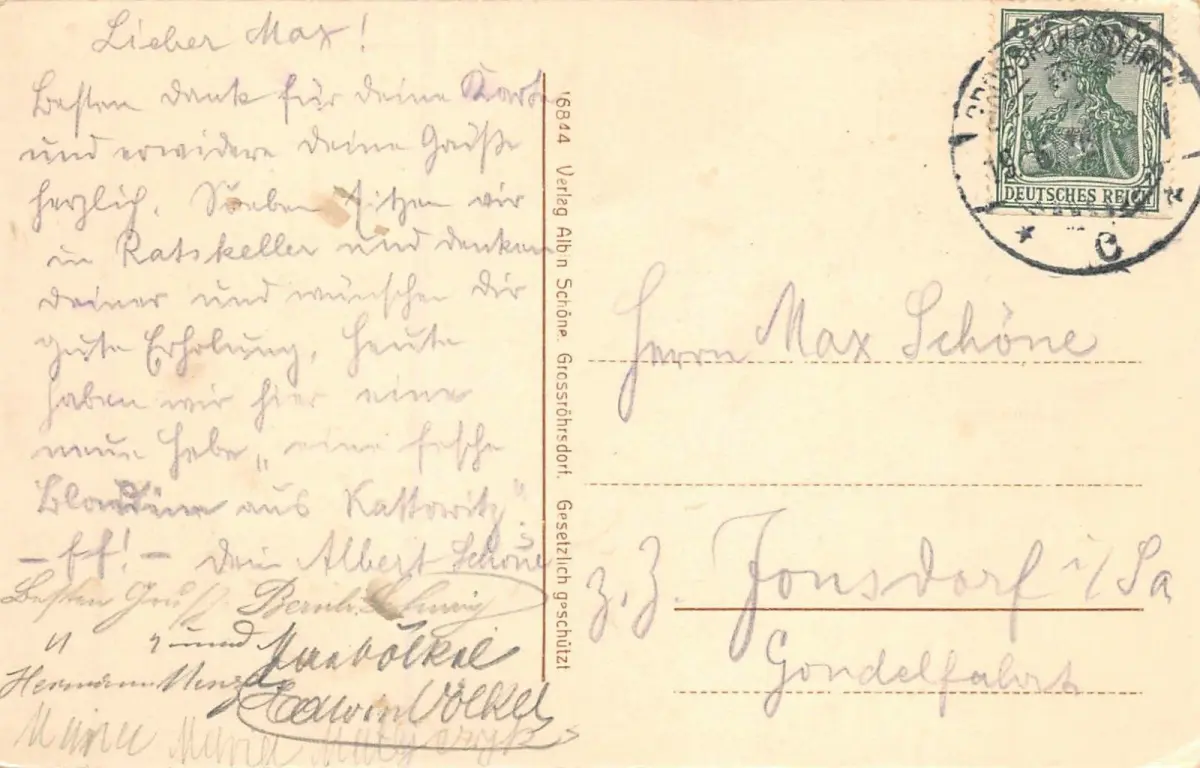 Lieber Max!
Besten Dank für deine Karte
und erwidere deine Grüße
herzlich. Soeben sitzen wir
im Ratskeller und denken
deiner und wünschen dir
gute Erholung. Heute
haben wir hier eine
neue Hebe „eine fesche
Blondine aus Kattowitz".
— ff! — Dein Albert Schöne
Besten Gruß
" " und Max Völkel
Hermann
Edwin Völkel
Maria
16844 Verlag Albin Schöne, Grossröhrsdorf. Gesetzlich geschützt
GROSSRÖHRSDORF
DEUTSCHES REICH
* C
Herrn Max Schöne
z. Z. Jonsdorf i/Sa
Gondelfahrt